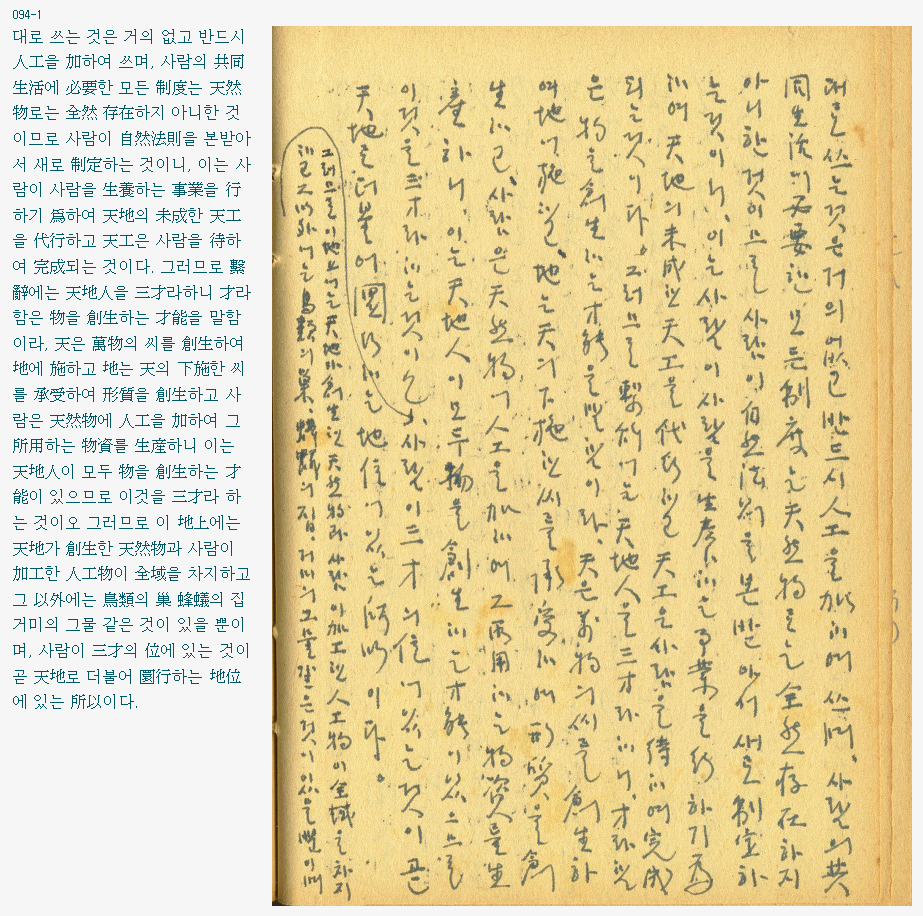 094-1
대로 쓰는 것은 거의 없고 반드시
人工을 加하여 쓰며, 사람의 共同
生活에 必要한 모든 制度는 天然
物로는 全然 存在하지 아니한 것
이므로 사람이 自然法則을 본받아
서 새로 制定하는 것이니, 이는 사
람이 사람을 生養하는 事業을 行
하기 爲하여 天地의 未成한 天工
을 代行하고 天工은 사람을 待하
여 完成되는 것이다. 그러므로 繫
辭에는 天地人을 三才라하니 才라
함은 物을 創生하는 才能을 말함
이라, 天은 萬物의 씨를 創生하여
地에 施하고 地는 天의 下施한 씨
를 承受하여 形質을 創生하고 사
람은 天然物에 人工을 加하여 그
所用하는 物資를 生産하니 이는
天地人이 모두 物을 創生하는 才
能이 있으므로 이것을 三才라 하
는 것이오 그러므로 이 地上에는
天地가 創生한 天然物과 사람이
加工한 人工物이 全域을 차지하고
그 以外에는 鳥類의 巢 蜂蟻의 집
거미의 그물 같은 것이 있을 뿐이
며, 사람이 三才의 位에 있는 것이
곧 天地로 더불어 圜行하는 地位
에 있는 所以이다.
대로 쓰는것은 거의 없고 반드시 人工을 加하여 쓰며, 사람의 共
同生活에 必要한 모든 制度는 天然物로는 全然 存在하지
아니한 것이므로 사람이 自然法則을 본받아서 새로 制定하
는것이니, 이는 사람이 사람을 生養하는 事業을 行하기 爲
하여 天地의 未成한 天工을 代行하고 天工은 사람을 待하여 完成
되는것이다. 그러므로 繫辭에는 天地人을 三才라하니, 才라함
은 物을 創生하는 才能을 말함이라, 天은 萬物의 씨를 創生하
여 地에 施하고, 地는 天의 下施한 씨를 承受하여 形質을 創
生하고, 사람은 天然物에 人工을 加하여 그 所用하는 物資를 生
產하니 이는 天地人이 모두 物을 創生하는 才能이 있으므로
이것을 三才라 하는것이오, 사람이 三才의 位에 있는것이 곧
天地로 더불어 圜行하는 地位에 있는 所以이다.
그러므로 이 地上에는 天地가 創生한 天然物과 사람이 加工한 人工物이 全域을 차지
하고 그 以外에는 鳥類의 巢, 蜂蟻의 집, 거미의 그물 같은것이 있을 뿐이며